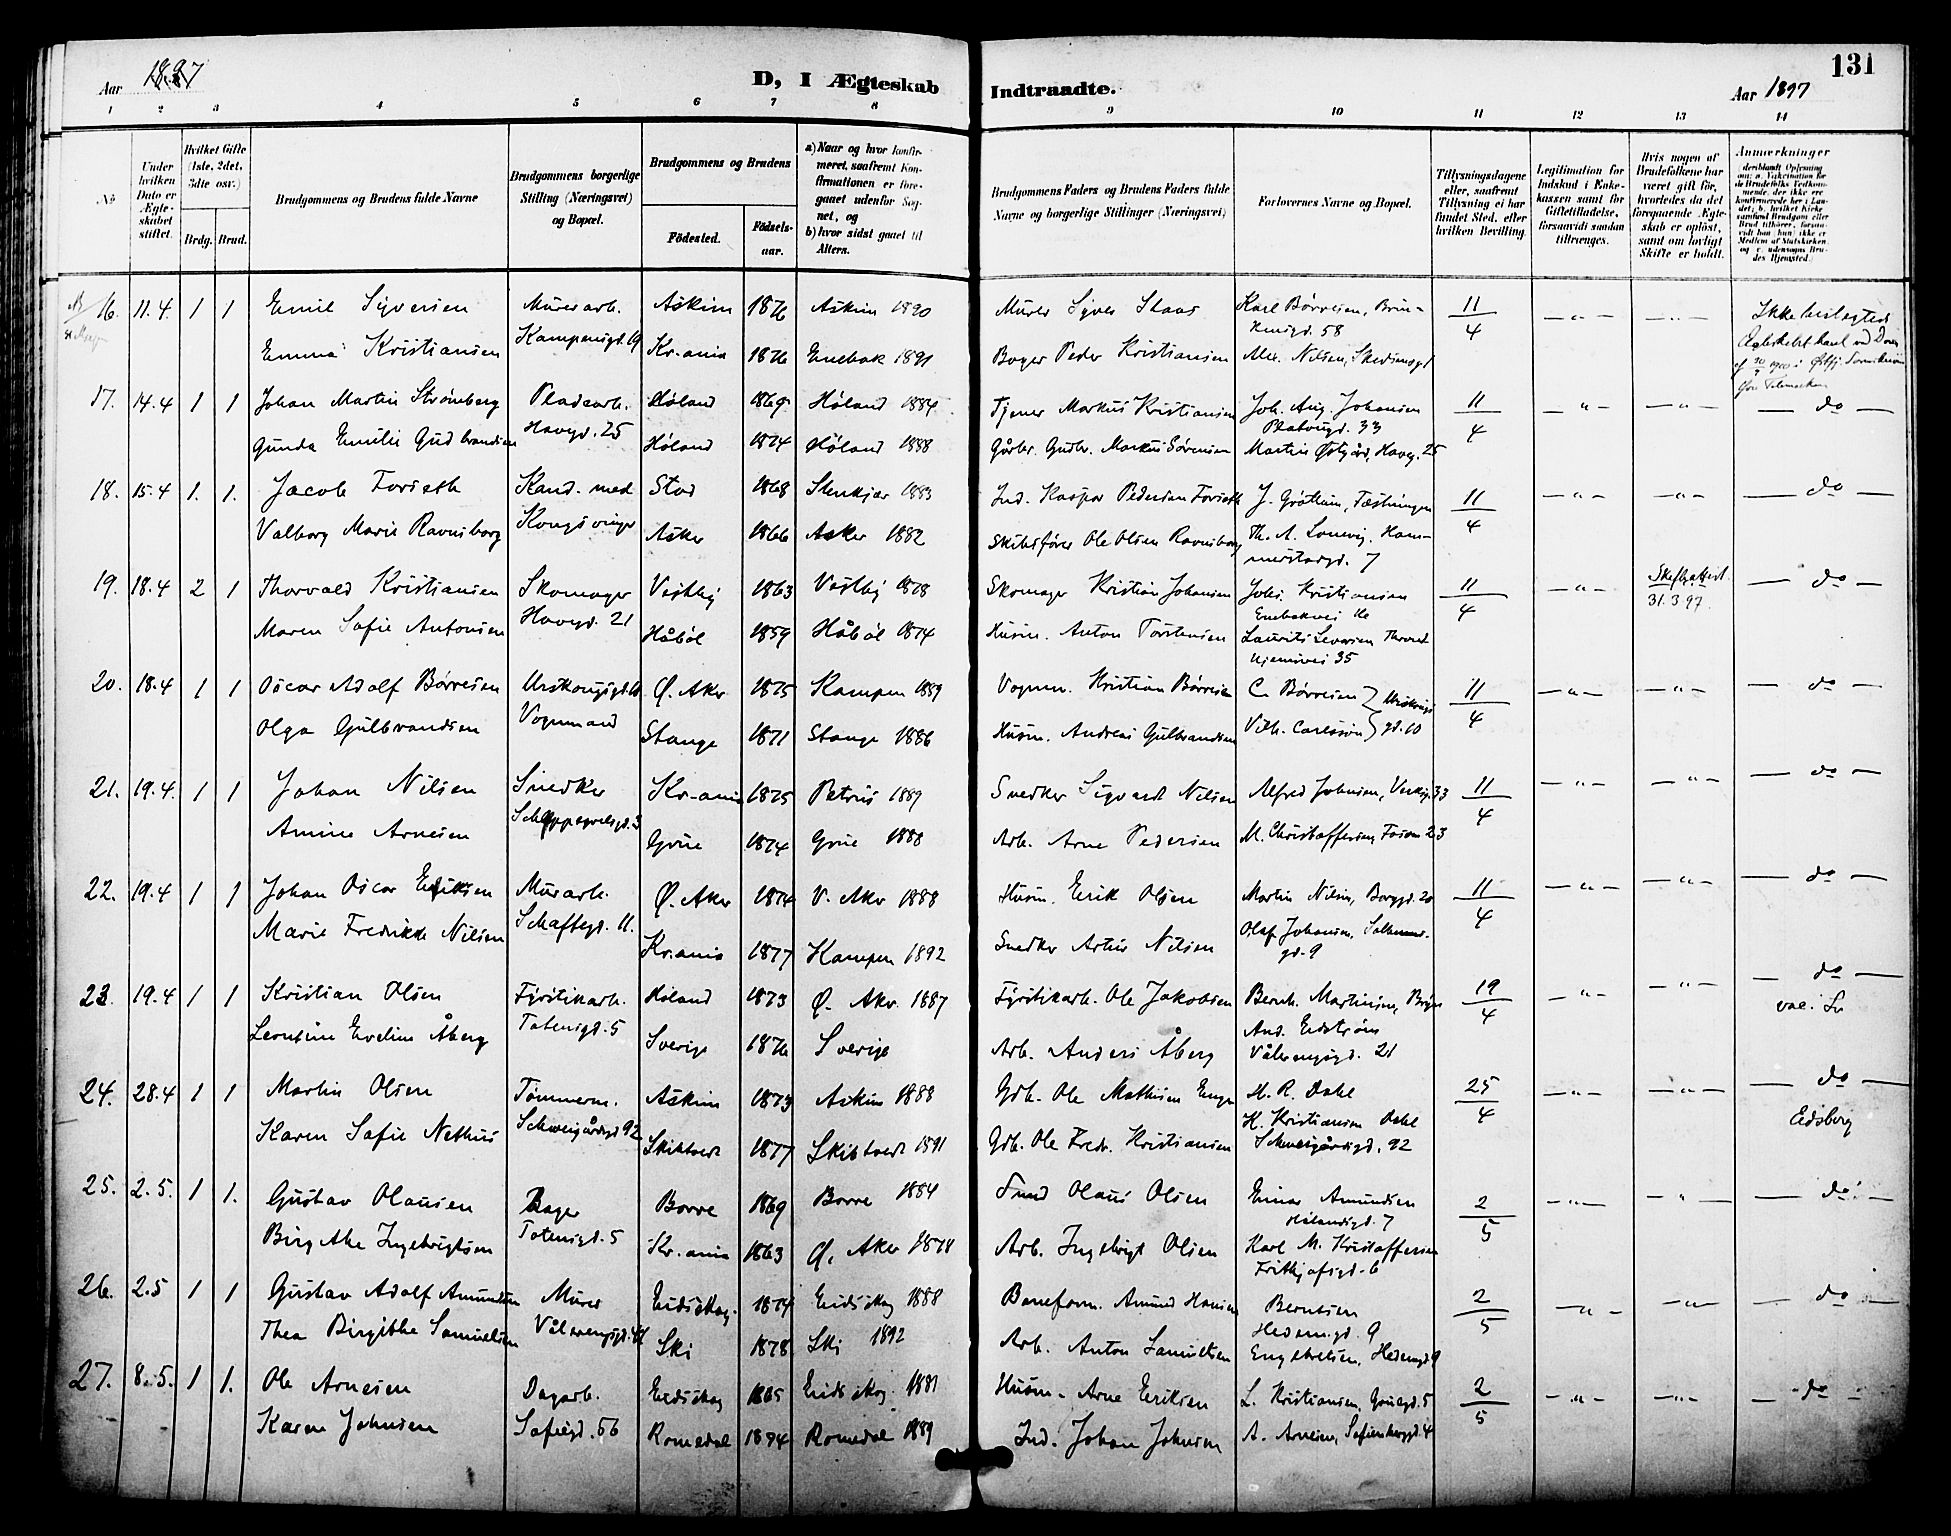 131
Aar 1897
D, I Ægteskab
Indtraadte.
Aar 1897
1 2 3 4 5 6 7 8
9 10 11 12 13 14
No
Under hvilken Dato er Ægteskabet stiftet.
Hvilket Gifte (1ste, 2det, 3die osv.)
Brdg. Brud.
Brudgommens og Brudens fulde Navne
Brudgommens borgerlige Stilling (Næringsvei) og Bopæl.
Brudgommens og Brudens
Fødested.
Fødselsaar.
a) Naar og hvor konfirmeret, saafremt Konfirmationen er foregaaet udenfor Sognet, og
b) hvor sidst gaaet til Alters.
Brudgommens Faders og Brudens Faders fulde Navne og borgerlige Stillinger (Næringsvei)
Forlovernes Navne og Bopæl.
Tillysningsdagene eller, saafremt Tillysning ei har fundet Sted, efter hvilken Bevilling.
Legitimation for Indskud i Enkekassen samt for Giftetilladelse, forsaavidt saadan tiltrænges.
Hvis nogen af Brudefolkene har været gift før, hvorledes da det foregaaende Ægteskab er opløst, samt om lovligt Skifte er holdt.
Anmærkninger
16. 11.4. 1 1 Emil Syversen Murerarb. Askim 1876 Askim 1890 Murer Syver Skaas Karl Børresen, 58 11/4 —"— —"—
Emma Kristiansen Kampensgd. 19 Kr.ania 1876 Enebak 1891 Bager Peder Kristiansen Alex. Nilsen, Skedsmogt
Ikke beslegtede
17. 14.4 1 1 Johan Martin Strömberg Pladearb. Høland 1869 Høland 1884 Tjener Markus Kristiansen Joh. Aug. Johansen 33 11/4 —"— —"— — do —
Gunda Emilie Gudbrandsen Havegd. 25 Høland 1874 Høland 1888 Gårbr. Gudbr. Markus Sørensen Martin Østgård, Haveg. 25
18. 15.4 1. 1. Jacob Forseth Kand. med Stod 1868 Stenkjær 1883 Ind. Kaspar Pedersen Forseth J. Grøttum, Fæstningen 11/4 —"— —"— — do —
Valborg Marie Ravnsborg Kongsvinger Asker 1866 Asker 1882 Skibsfører Ole Olsen Ravnsborg Th. A. Lonevig, Hammerstadgd. 7
19. 18.4 2 1 Thorvald Kristiansen Skomager Vestby 1863 Vestby 1878 Skomager Kristian Johansen Johs. Kristiansen Enebakvei 11/4 —"— Skifteattest 31.3.97. — do —
Maren Sofie Antonsen Havegd. 21 Håbøl 1859 Håbøl 1874 Husm. Anton Torstensen Laurits Seversen 35
20. 18.4 1 1 Oscar Adolf Børresen Urskougsgd. 10 Ø. Aker 1875 Kampen 1889 Vognm. Kristian Børresen C. Børresen } Urskougs 11/4 —"— —"— — do —
Olga Gulbrandsen Vognmand Stange 1871 Stange 1886 Husm. Andreas Gulbrandsen Vilh. Carlsson } gd. 10
21. 19.4. 1 1 Johan Nilsen Snedker Kr.ania 1875 Petrus 1889 Snedker Sigvard Nilsen Alfred Johnsen, 33 11/4 —"— —"— — do —
Amine Arnesen Schleppegrelsgd. 3 Grue 1874 Grue 1888 Arb. Arne Pedersen M. Christoffersen, Fossum 23
22. 19.4 1 1 Johan Oscar Eriksen Murarb. Ø. Aker 1874 V. Aker 1888 Husm. Erik Olsen Martin Nilsen, Borggd. 20 11/4 —"— —"— — do —
Marie Fredrikke Nilsen Schaftegd. 11. Kr.ania 1877 Kampen 1892 Snedker Artur Nilsen Olaf Johansen, gd. 9
23. 19.4 1 1 Kristian Olsen Fyrstikarb. Høland 1873 Ø. Aker 1887 Fyrstikarb. Ole Jakobsen Bernh. Martinsen, Bryn 19/4 —"— —"— — do —
Leontine Evelina Åberg Totensgd. 5 Sverige 1876 Sverige Arb. Anders Åberg And. Eidstrøm Vålerengsgd. 21
vac. Sv.
24. 28.4 1 1 Martin Olsen Tømmerm. Askim 1873 Askim 1888 Gdb. Ole Mathisen Enger H. R. Dahl 25/4 —"— —"— — do —
Karen Sofie Nethus Schweigårdsgd 92 Skiptvedt 1877 Skibtvedt 1891 Gdb. Ole Fredr. Kristiansen H. Kristiansen Dahl Schweigårdsgd. 92
Eidsberg
25. 2.5. 1 1. Gustav Olausen Bager Borre 1869 Borre 1884 Smed Olaus Olsen Einar Amundsen Hølandsgd. 7 2/5 —"— —"— — do —
Birgithe Ingebrigtsen Totensgd. 5 Kr.ania 1863 Ø. Aker 1878 Arb. Ingebrigt Olsen Karl M. Kristoffersen Frithjofsgd. 6
26. 2.5 1 1 Gustav Adolf Amundsen Murer Eidsskog 1874 Eidsskog 1888 Baneform. Amund Hansen Berntsen Hedem.gd. 9 2/5 —"— —"— — do —
Thea Birgithe Samuelsen Vålerengsgd. Ski 1878 Ski 1892 Arb. Anton Samuelsen Engebretsen, Hedemgd 9
27. 8.5. 1 1. Ole Arnesen Dagarb. Eidsskog 1865 Eidsskog 1881 Husm. Arne Eriksen L. Kristiansen, Gruegd. 5 2/5 —"— —"— — do
Karen Johnsen Sofiegd. 56 Romedal 1874 Romedal 1889 Ind. Johan Johnsen A. Arnesen, Sofienberggd. 4